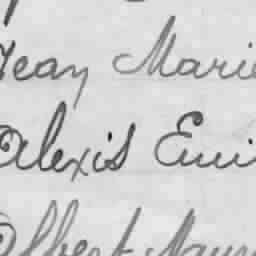 Jean Marie
Alexis Emi
Albert Maur